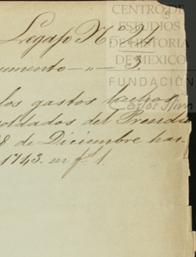 CENTRO DE
ESTUDIOS
DE HISTORIA
DE MEXICO
FUNDACIÓN
Legajo Nº 3
umento — „ — 3
los gastos hechos
oldados del Presidio
8 de Diciembre has
1743. en f. 1